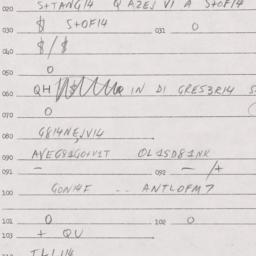 020 S+TANG14 Q AZEJ VI A S+OF14
030 $ S+OF14 031 0
040 $/$
050 0
060 QH IN DI GRES3R14
070 0
080 G814NEJV14
090 AVEG81GO+V1T OL1SD81NK
091 — 092 — /+
100 GON14F -- ANTLOFM7
101 0 102 0
103 + QV